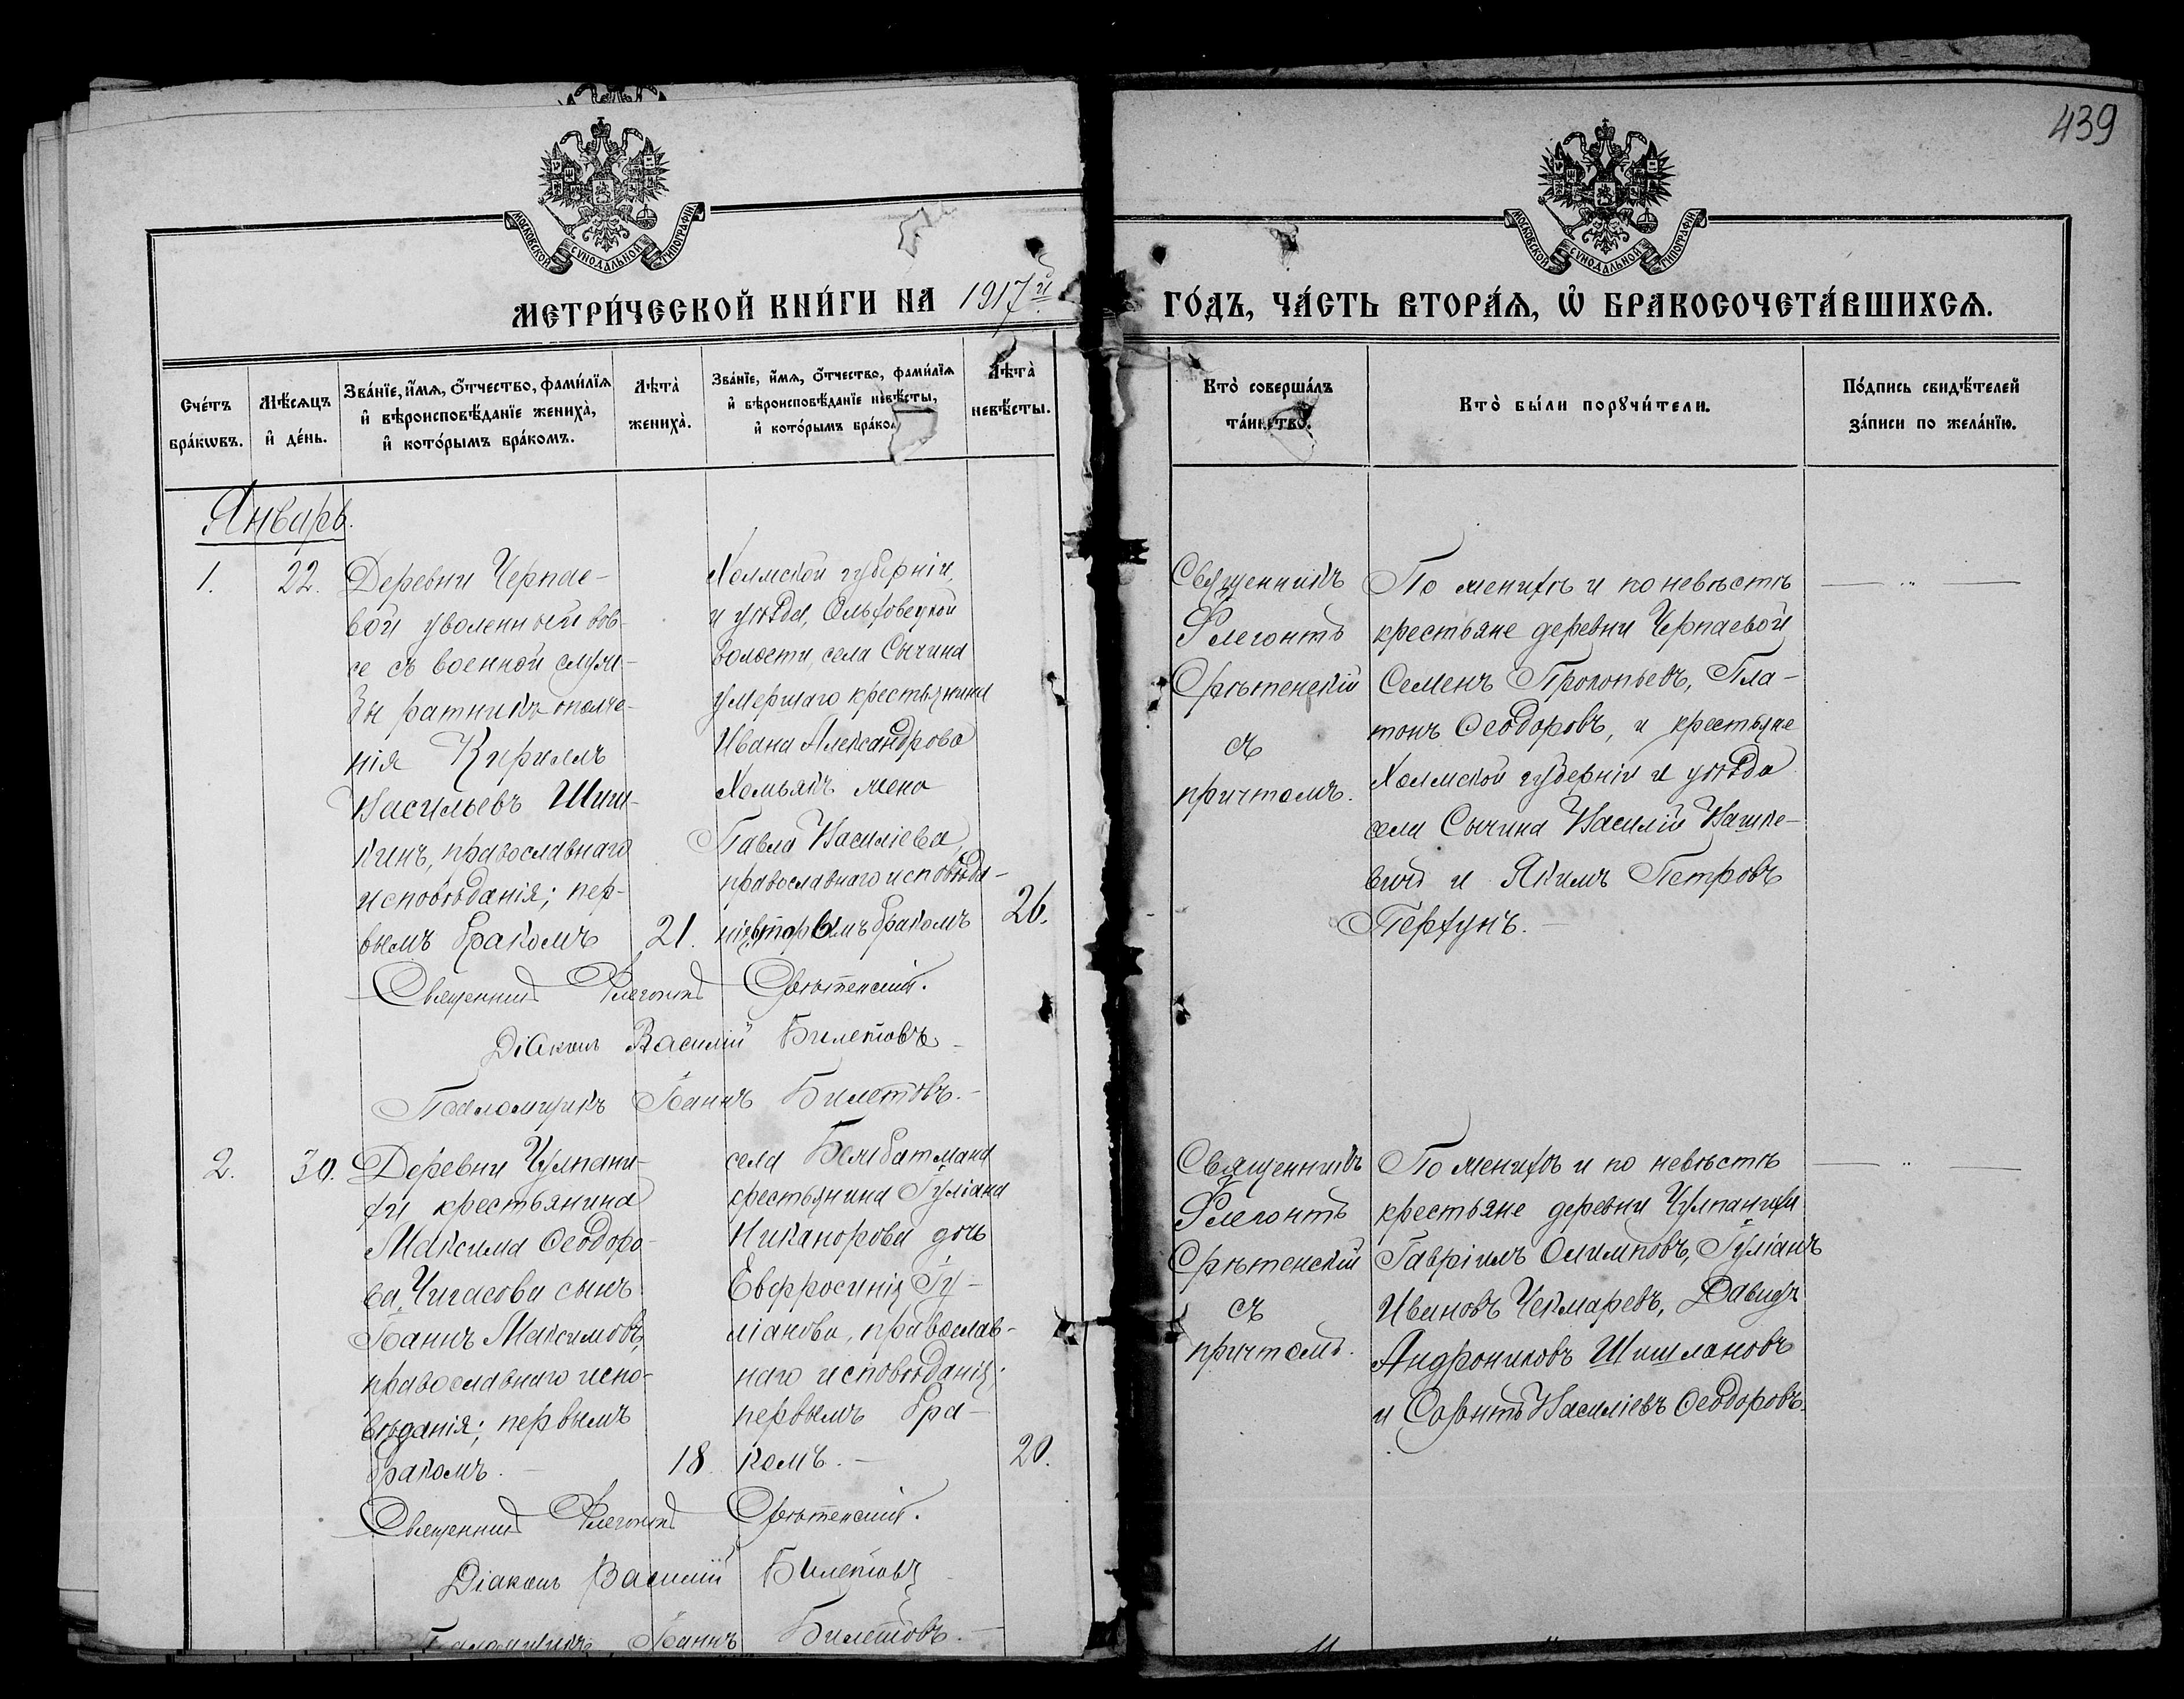 439
МОСКОВСКОЙ СѴНОДАЛЬНОЙ ТИПОГРАФІИ
МОСКОВСКОЙ СѴНОДАЛЬНОЙ ТИПОГРАФІИ
МЕТРИ́ЧЕСКОЙ КНИ́ГИ НА 1917й ГО́ДЪ, ЧА́СТЬ ВТОРА́Ѧ, Ѽ БРАКОСОЧЕТА́ВШИХСѦ.
Сче́тъ бра́кѡвъ.
Мѣ́сѧцъ и҆ де́нь.
Зва́нїе, и҆́мѧ, ѻ҆́тчество, фами́лїѧ и҆ вѣроисповѣ́данїе жениха̀, и҆ кото́рымъ бра́комъ.
Лѣта̀ жениха̀.
Зва́нїе, и҆́мѧ, ѻ҆́тчество, фами́лїѧ и҆ вѣроисповѣ́данїе невѣ́сты, и҆ кото́рымъ бра́ко
Лѣта̀ невѣ́сты.
Кто̀ соверша́лъ та́инство.
Кто̀ бы́ли порꙋчи́тели.
По́дпись свидѣ́телей за́писи по жела́нїю.
Январь.
1.
22.
Деревни Черпае-
вой уволенный вов-
се съ военной служ-
бы ратникъ ополче-
нія Кириллъ
Васильевъ Шиш-
кинъ, православнаго
исповѣданія; пер-
вымъ бракомъ
21.
Холмской губерніи,
и уѣзда, Ольховецкой
волости, села Сычина
умершаго крестьянина
Ивана Александрова
Хомьякъ жена
Павла Василіева,
православнаго исповѣда-
нія, вторымъ бракомъ
26.
Священникъ
Флегонтъ
Срѣтенскій
съ
причтомъ.
По женихѣ и по невѣстѣ
крестьяне деревни Черпаевой
Семенъ Прокопьевъ, Пла-
тонъ Ѳеодоровъ, и крестьяне
Холмской губерніи и уѣзда
села Сычина Василій Вашке-
вичъ и Якимъ Петровъ
Перхунъ.
Священникъ Флегонтъ Срѣтенскій.
Діаконъ Василій Билетовъ
Псаломщикъ Іоаннъ Билетовъ.
2.
30.
Деревни Чулпани-
хи крестьянина
Максима Ѳеодоро-
ва Чигасова сынъ
Іоаннъ Максимовъ,
православнаго испо-
вѣданія; первымъ
бракомъ.
18.
села
крестьянина Іуліана
Никанорова дочь
Евфросинія Іу-
ліанова, православ-
наго исповѣданія;
первымъ бра-
комъ.
20.
Священникъ
Флегонтъ
Срѣтенскій
съ
причтомъ.
По женихѣ и по невѣстѣ
крестьяне деревни Чулпанихи
Гавріилъ Олимповъ, Іуліанъ
Ивановъ Чекмаревъ, Давидъ
Андрониковъ Шишлановъ
и Созонтъ Василіевъ Ѳеодоровъ.
Священникъ Флегонтъ Срѣтенскій.
Діаконъ Василій Билетовъ
Псаломщикъ Іоаннъ Билетовъ.